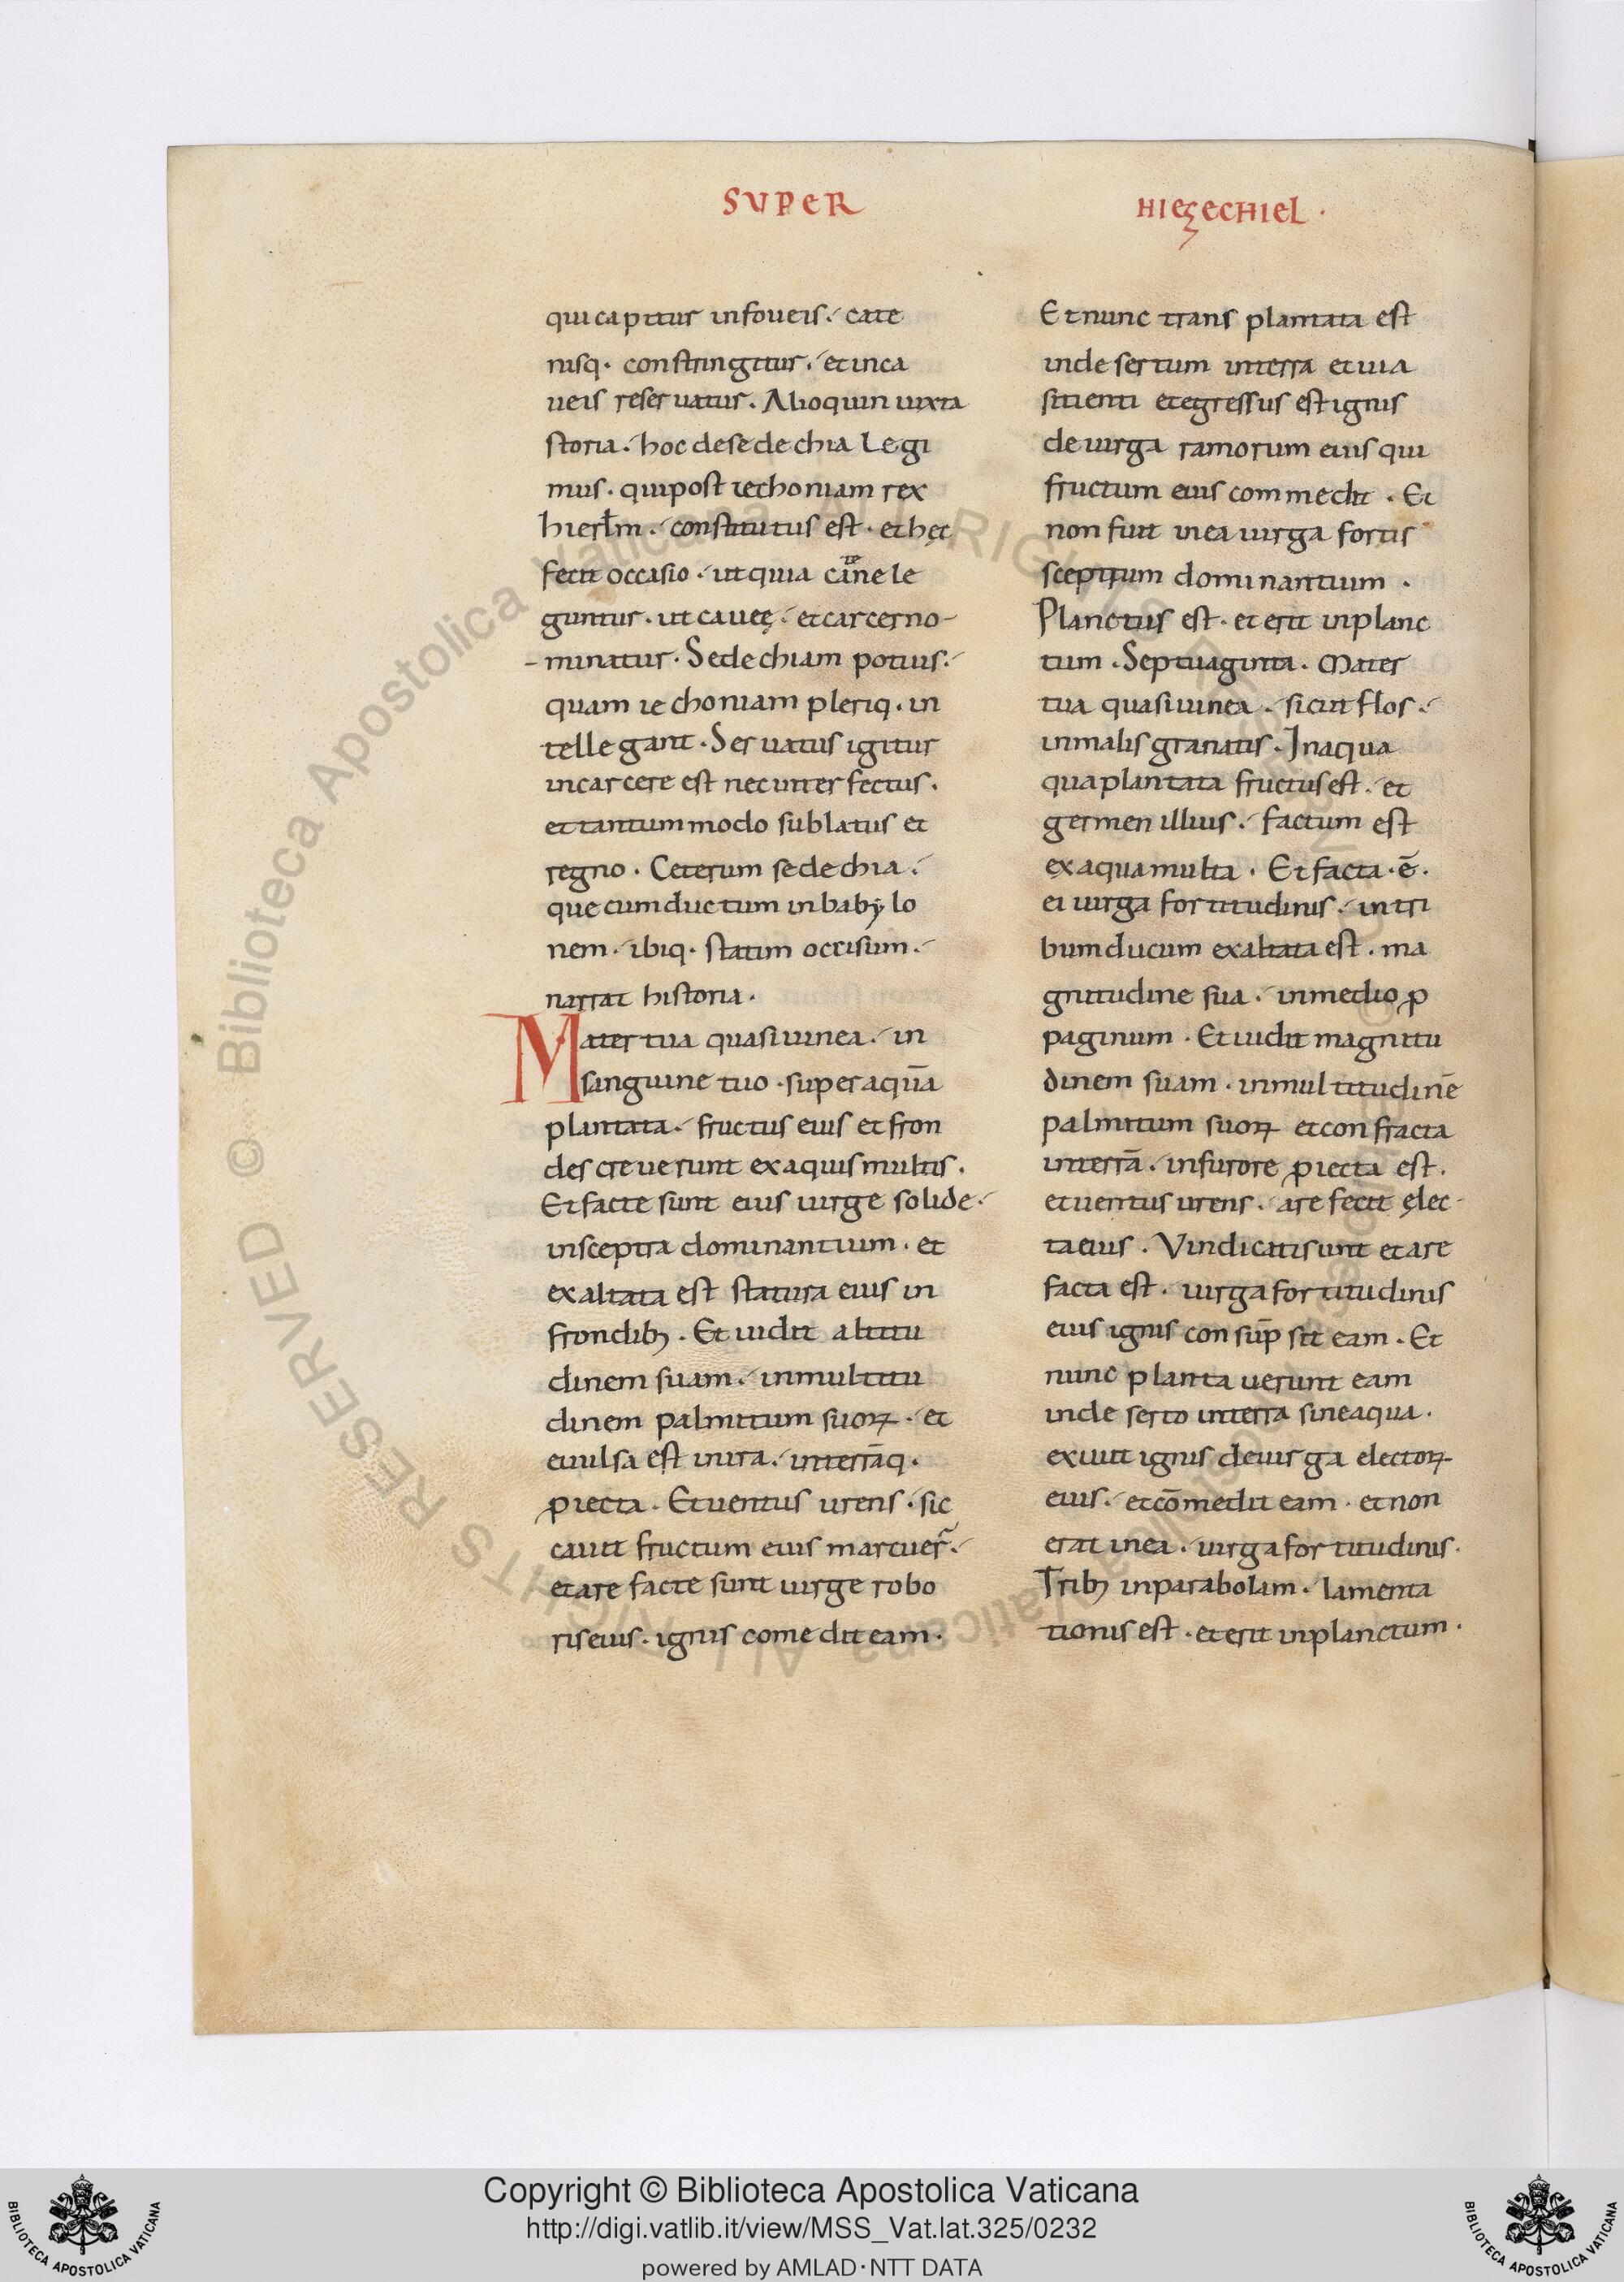 SUPER
HIEZECHIEL ·
qui capitur in foueis · cate
nisq· constringitur · et in ca
ueis reseruatur · Alioquin iuxta
storia · hoc de sedechia legi
mus · qui post iechoniam rex
hierłm · constitutus est · et hęc
fecit occasio · ut quia
guntur · ut caueę · et carcer no-
-minatur · Sedechiam potius ·
quam iechoniam pleriq· in
tellegant · Seruatus igitur
in carcere est nec interfectus ·
et tantummodo sublatus et
regno · Ceterum sedechia ·
que cum ductum in babẏlo
nem · ibiq· statim occisum ·
narrat historia ·
Mater tua quasi uinea · in
sanguine tuo · super aquā
plantata · fructus eius et fron
des creuerunt ex aquis multis ·
Et facte sunt eius uirge solide ·
in sceptra dominantium · et
exaltata est statura eius in
frondibꝫ · Et uidit altitu
dinem suam · in multitu
dinem palmitum suoꝝ · et
euulsa est in ira · in terrāq·
ꝓiecta · Et uentus urens · sic
cauit fructum eius marcuer̄ ·
et arefacte sunt uirge robo
ris eius · ignis comedit eam ·
Et nunc transplantata est
in desertum in terra et uia
sitienti et egressus est ignis
de uirga ramorum eius qui
fructum eius commedit · Et
non fuit in ea uirga fortis
sceptrum dominantium ·
Planctus est · et erit in planc
tum · Septuaginta · Mater
tua quasi uinea · sicut flos ·
in malis granatis · In aqua
qua plantata fructus est · et
germen illius · factum est
ex aqua multa · Et facta · ē ·
ei uirga fortitudinis · in tri
bum ducum exaltata est · ma
gnitudine sua · in medio ꝓ
paginum · Et uidit magnitu
dinem suam · in multitudinē
palmitum suoꝝ et confracta
in terrā · in furore ꝓiecta est ·
et uentus urens · arefecit ęlec-
ta eius · Vindicati sunt et are
facta est · uirga fortitudinis
eius ignis consūpsit eam · Et
nunc plantauerunt eam
in deserto in terra sine aqua ·
exiuit ignis de uirga electoꝝ
eius · et cōmedit eam · et non
erat in ea · uirga fortitudinis ·
Tribꝫ in parabolam · lamenta
tionis est · et erit in planctum ·
Copyright © Biblioteca Apostolica Vaticana
http://digi.vatlib.it/view/MSS_Vat.lat.325/0232
powered by AMLAD·NTT DATA
BIBLIOTECA APOSTOLICA VATICANA
BIBLIOTECA APOSTOLICA VATICANA